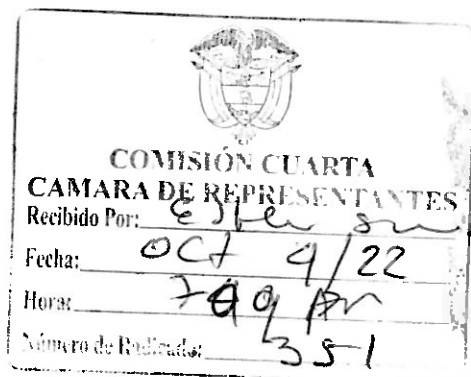 COMISIÓN CUARTA
CAMARA DE REPRESENTANTES
Recibido Por:
Fecha: OCT 4/22
Hora:
Número de Radicado: 351